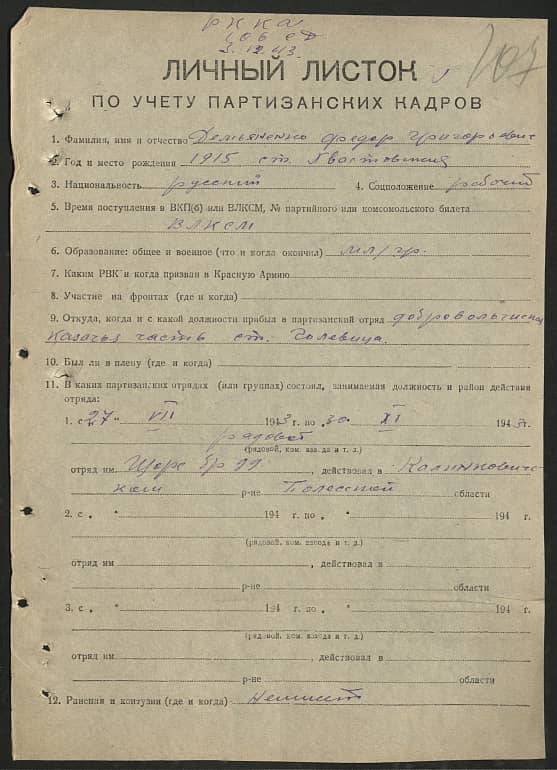 РККА
106 СД
3.12.43
207
ЛИЧНЫЙ ЛИСТОК
ПО УЧЕТУ ПАРТИЗАНСКИХ КАДРОВ
1. Фамилия, имя и отчество Демьяненко Федор Григорьевич
2. Год и место рождения 1915 ст.
3. Национальность русский 4. Соцположение рабочий
5. Время поступления в ВКП(б) или ВЛКСМ, № партийного или комсомольского билета
ВЛКСМ
6. Образование: общее и военное (что и когда окончил)
7. Каким РВК и когда призван в Красную Армию
8. Участие на фронтах (где и когда)
9. Откуда, когда и с какой должности прибыл в партизанский отряд добровольческая
казачья часть ст. Голевица.
10. Был ли в плену (где и когда)
11. В каких партизанских отрядах (или группах) состоял, занимаемая должность и район действия
отряда:
1. с „27 “ VII 1943 г. по „30 “ XI 1943 г.
рядовой
(рядовой, ком. взвода и т. д.)
отряд им. Щорс бр 99 , действовал в Калинкович-
ском р-не Полесской области
2. с „ “ 194 г. по „ “ 194 г.
(рядовой, ком. взвода и т. д.)
отряд им , действовал в
р-не области
3. с „ “ 194 г. по „ “ 194 г.
(рядовой, ком. взвода и т. д.)
отряд им. , действовал в
р-не области
12. Ранения и контузии (где и когда)